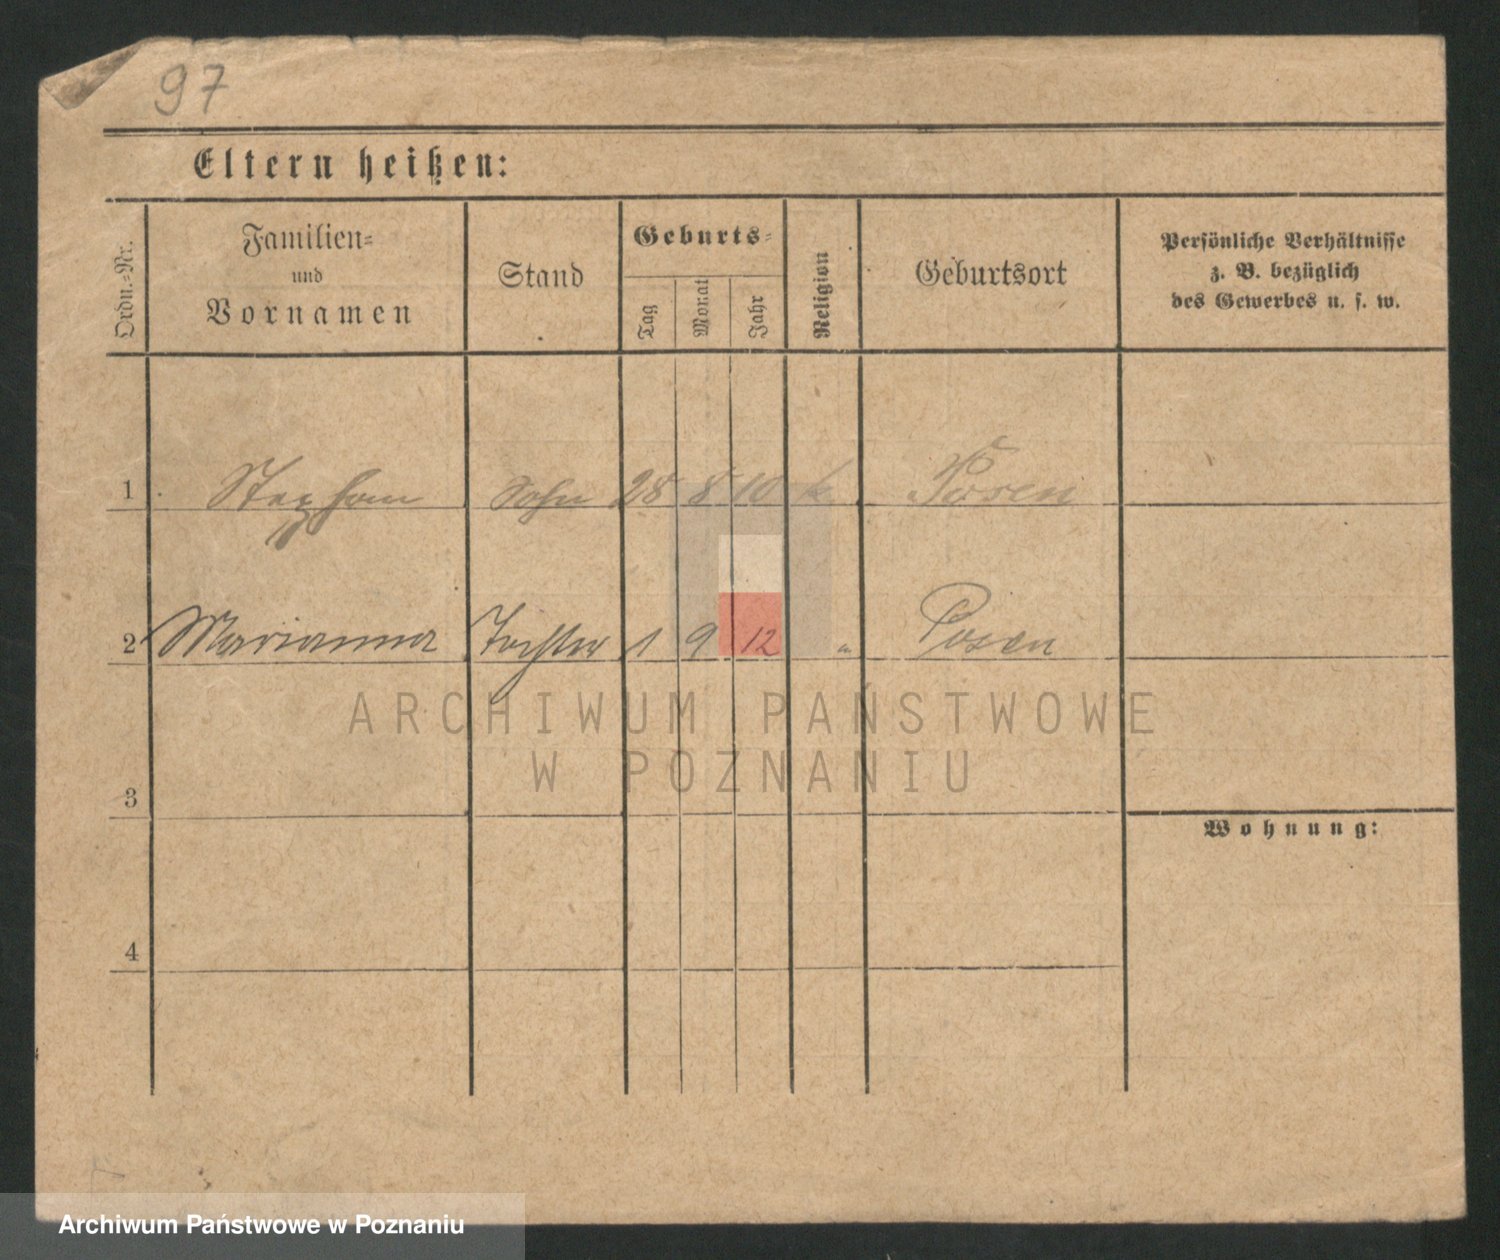 97
Eltern heißen:
Ordn.-Nr.
Familien-
und
Vornamen
Stand
Geburts-
Tag
Monat
Jahr
Religion
Geburtsort
Persönliche Verhältnisse
z. B. bezüglich
des Gewerbes u. s. w.
1 Stephan Sohn 28 8 10 k Posen
2 Marianna Tochter 1 9 12 " Posen
ARCHIWUM PAŃSTWOWE
W POZNANIU
3
Wohnung:
4
Archiwum Państwowe w Poznaniu